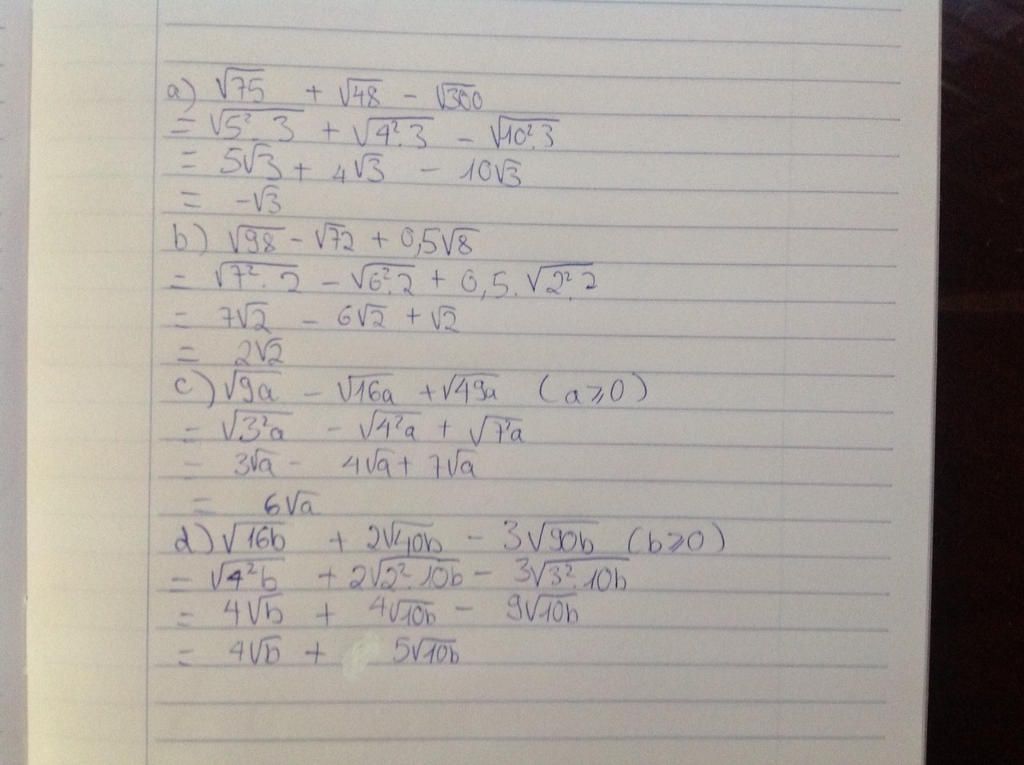 a) √75 + √48 - √300
= √5².3 + √4².3 - √10².3
= 5√3 + 4√3 - 10√3
= -√3
b) √98 - √72 + 0,5√8
= √7².2 - √6².2 + 0,5.√2².2
= 7√2 - 6√2 + √2
= 2√2
c) √9a - √16a + √49a (a≥0)
= √3²a - √4²a + √7²a
= 3√a - 4√a + 7√a
= 6√a
d) √16b + 2√40b - 3√90b (b≥0)
= √4²b + 2√2².10b - 3√3².10b
= 4√b + 4√10b - 9√10b
= 4√b + 5√10b